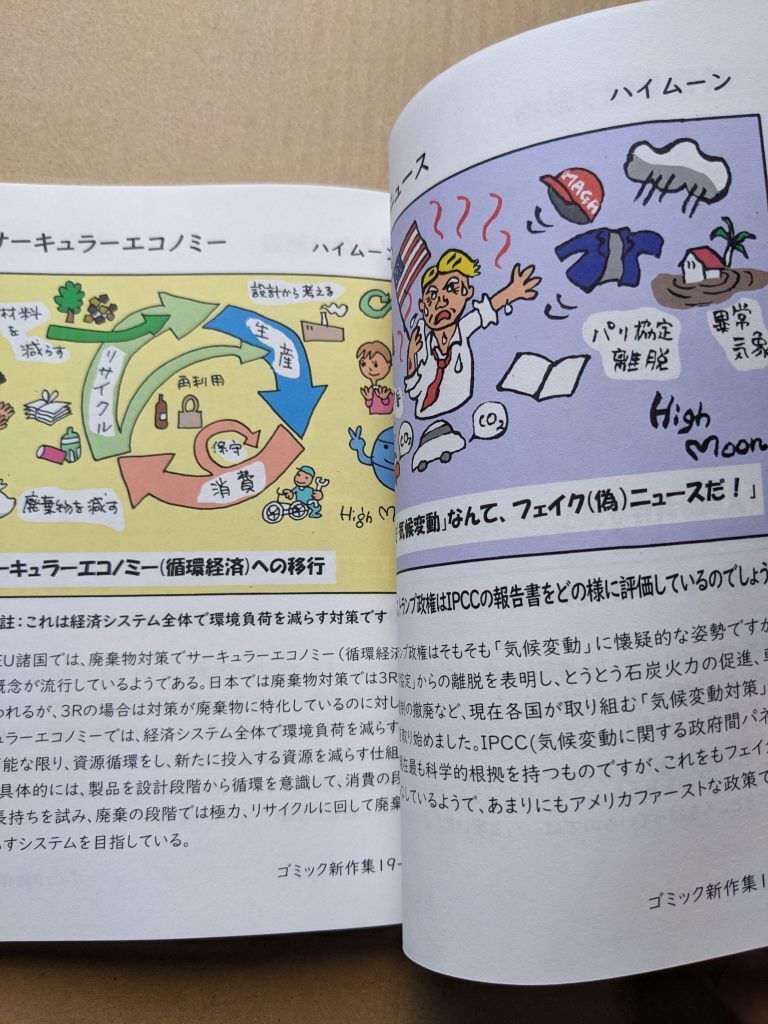 サーキュラーエコノミー
ハイムーン
材料
を
減らす
設計から考える
リサイクル
生産
再利用
保守
消費
廃棄物を減す
High M
ーキュラーエコノミー(循環経済)への移行
註：これは経済システム全体で環境負荷を減らす対策です
EU諸国では、廃棄物対策でサーキュラーエコノミー(循環経済
概念が流行しているようである。日本では廃棄物対策では3R
われるが、3Rの場合は対策が廃棄物に特化しているのに対し
ュラーエコノミーでは、経済システム全体で環境負荷を減らす
可能な限り、資源循環をし、新たに投入する資源を減らす仕組
具体的には、製品を設計段階から循環を意識して、消費の段
長持ちを試み、廃棄の段階では極力、リサイクルに回して廃棄
らすシステムを目指している。
ゴミック新作集19-
ハイムーン
ュース
MAGA
パリ協定
離脱
異常
気象
CO2
CO2
High
Moon
気候変動」なんて、フェイク(偽)ニュースだ！」
トランプ政権はIPCCの報告書をどの様に評価しているのでしょう
ンプ政権はそもそも「気候変動」に懐疑的な姿勢ですが
定」からの離脱を表明し、とうとう石炭火力の促進、
の撤廃など、現在各国が取り組む「気候変動対策」
取り始めました。IPCC(気候変動に関する政府間パネ
在最も科学的根拠を持つものですが、これをもフェイク
しているようで、あまりにもアメリカファーストな政策で
ゴミック新作集1